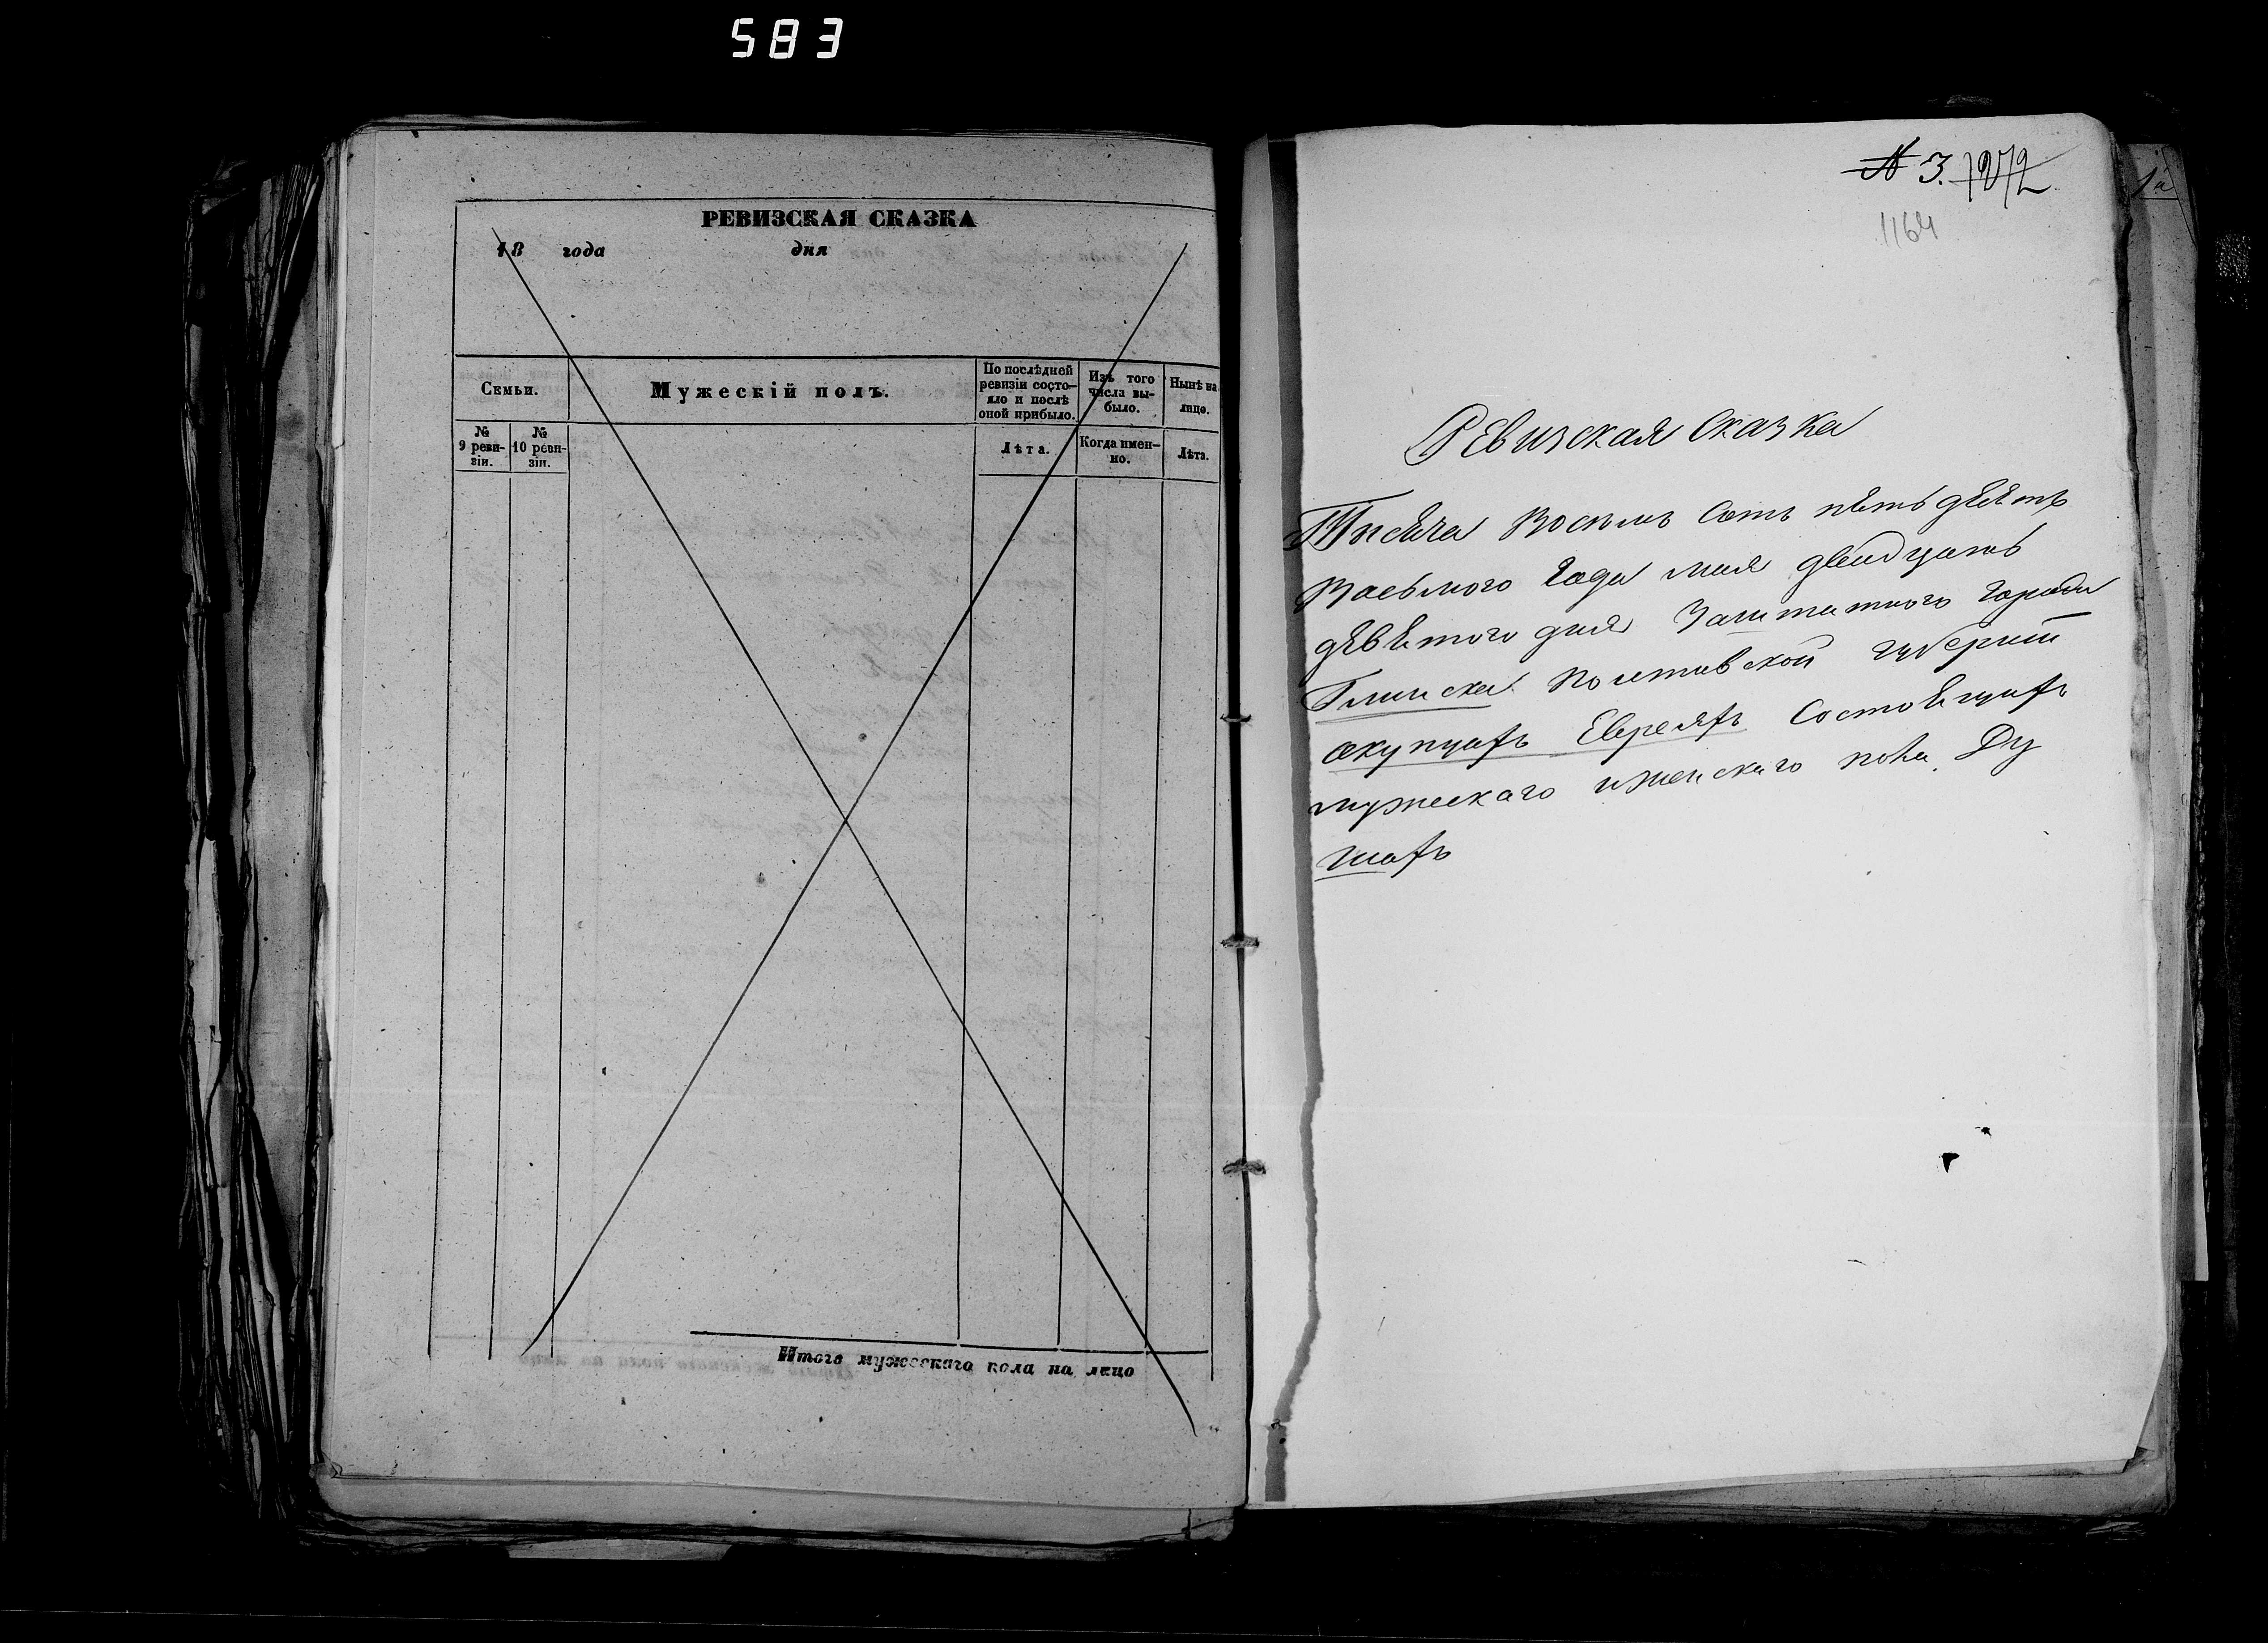 583
РЕВИЗСКАЯ СКАЗКА
18 года дня
Семьи.
Мужескій полъ.
По послѣдней ревизіи состо-
яло и послѣ оной прибыло.
Изъ того числа вы-
было.
Нынѣ на лицо.
№ 9 реви-
зіи.
№ 10 реви-
зіи.
Лѣта.
Когда имен-
но.
Лѣта.
Итого мужескаго пола на лицо
№ 3.
1164
Ревизская Сказка
Тысяча Восемь Сотъ пятьдесятъ
Восьмого года мая двадцать
девятого дня Заштатного города
Глинска Полтавской губерніи
окупцахъ Евреяхъ Состоящихъ
мужескаго иженскаго пола Ду
шахъ